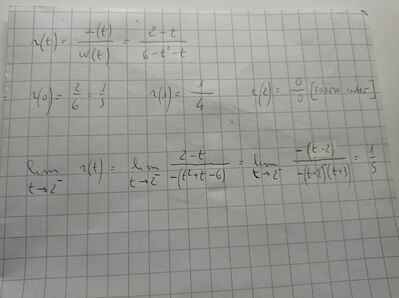 r(t) = r(t)/w(t) = 2-t/6-t²-t
= r(0) = 2/6 = 1/3 r(1) = 1/4 r(2) = 0/0 [FORMA INDET]
lim t→2⁻ r(t) = lim t→2⁻ 2-t/-(t²+t-6) = lim t→2⁻ -(t-2)/-(t-2)(t+3) = 1/5